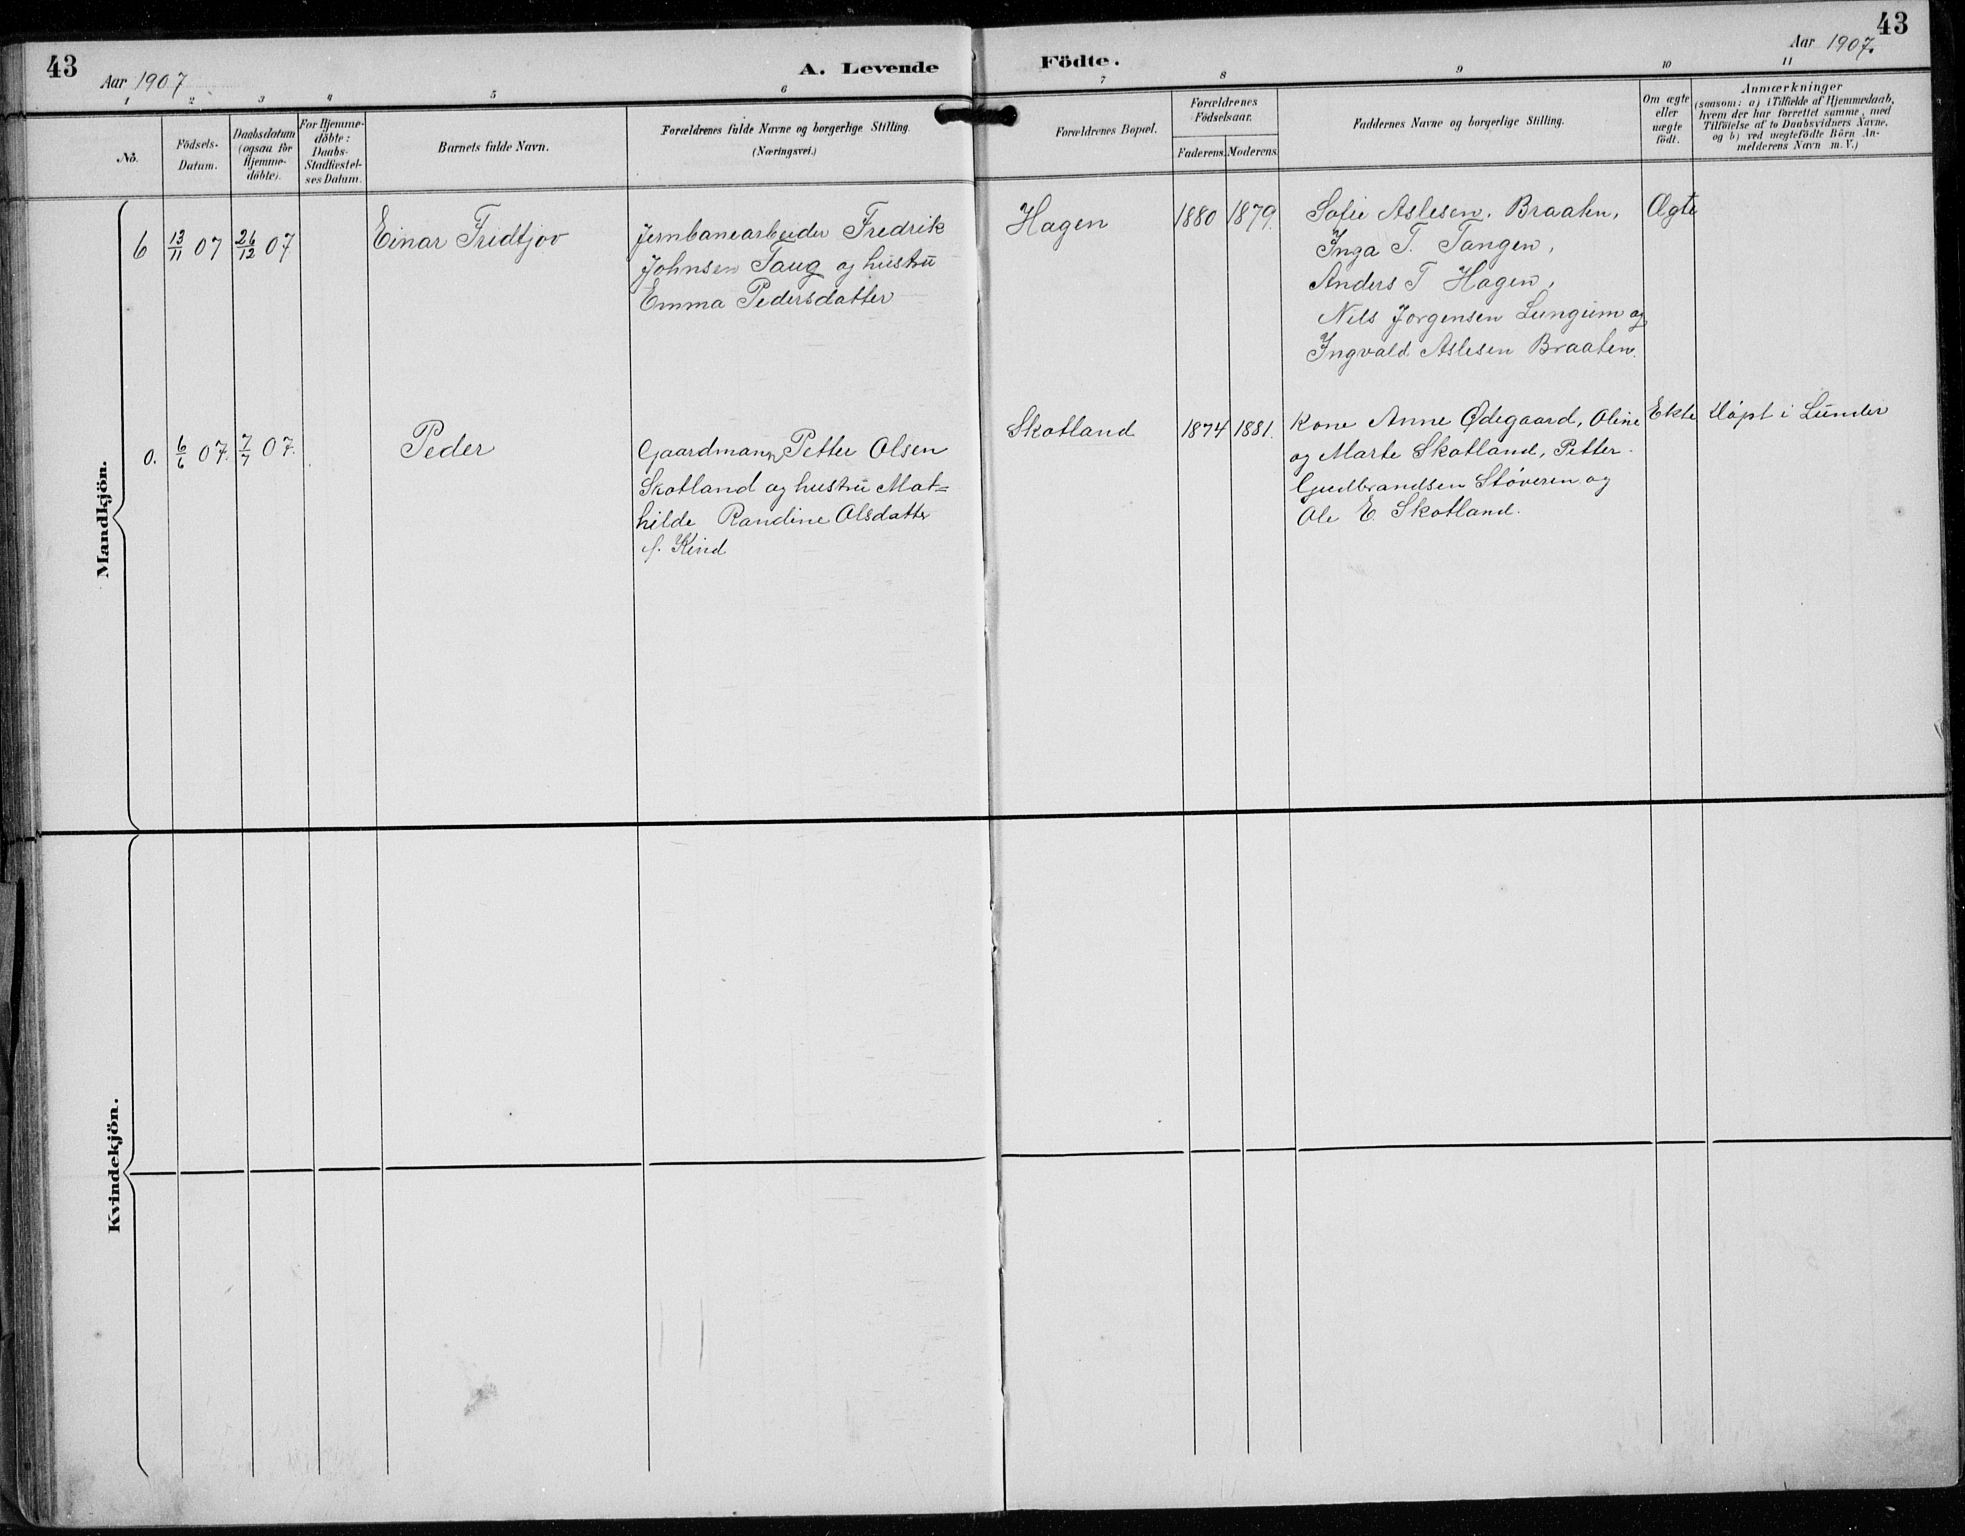 43
Aar 1907
A. Levende
Födte.
Aar 1907.
43
1 2 3 4 5 6 7 8 9 10 11
No.
Födsels-
Datum.
Daabsdatum
(ogsaa for
Hjemme-
döbte).
For Hjemme-
döbte:
Daabs-
Stadfæstel-
ses Datum.
Barnets fulde Navn.
Forældrenes fulde Navne og borgerlige Stilling.
(Næringsvei.)
Forældrenes Bopæl.
Forældrenes
Födselsaar.
Faderens. Moderens.
Faddernes Navne og borgerlige Stilling.
Om ægte
eller
uægte
födt.
Anmærkninger
(saasom: a) i Tilfælde af Hjemmedaab,
hvem der har forrettet samme, med
Tilföielse af to Daabsvidners Navne,
og b) ved uægtefödte Börn An-
melderens Navn m. V.)
Mandkjön.
6 13/11 07 26/12 07 Einar Fridtjov
Jernbanearbeider Fredrik
Johnsen Taug og hustru
Emma Pedersdatter
Hagen 1880 1879.
Sofie Aslesen, Braaten,
Inga T. Tangen,
Anders T Hagen,
Nils Jorgensen Lungum og
Ingvald Aslesen Braaten.
Ægte
0. 6/6 07. 7/7 07. Peder
Gaardmann Petter Olsen
Skotland og hustru Mat=
hilde Randine Olsdatter
f. Kind
Skotland 1874 1881.
Kone Anne Ødegaard, Oline
og Marte Skotland, Petter
Gudbrandsen Støveren og
Ole E. Skotland.
Ekte Døpt i Lunder
Kvindekjön.